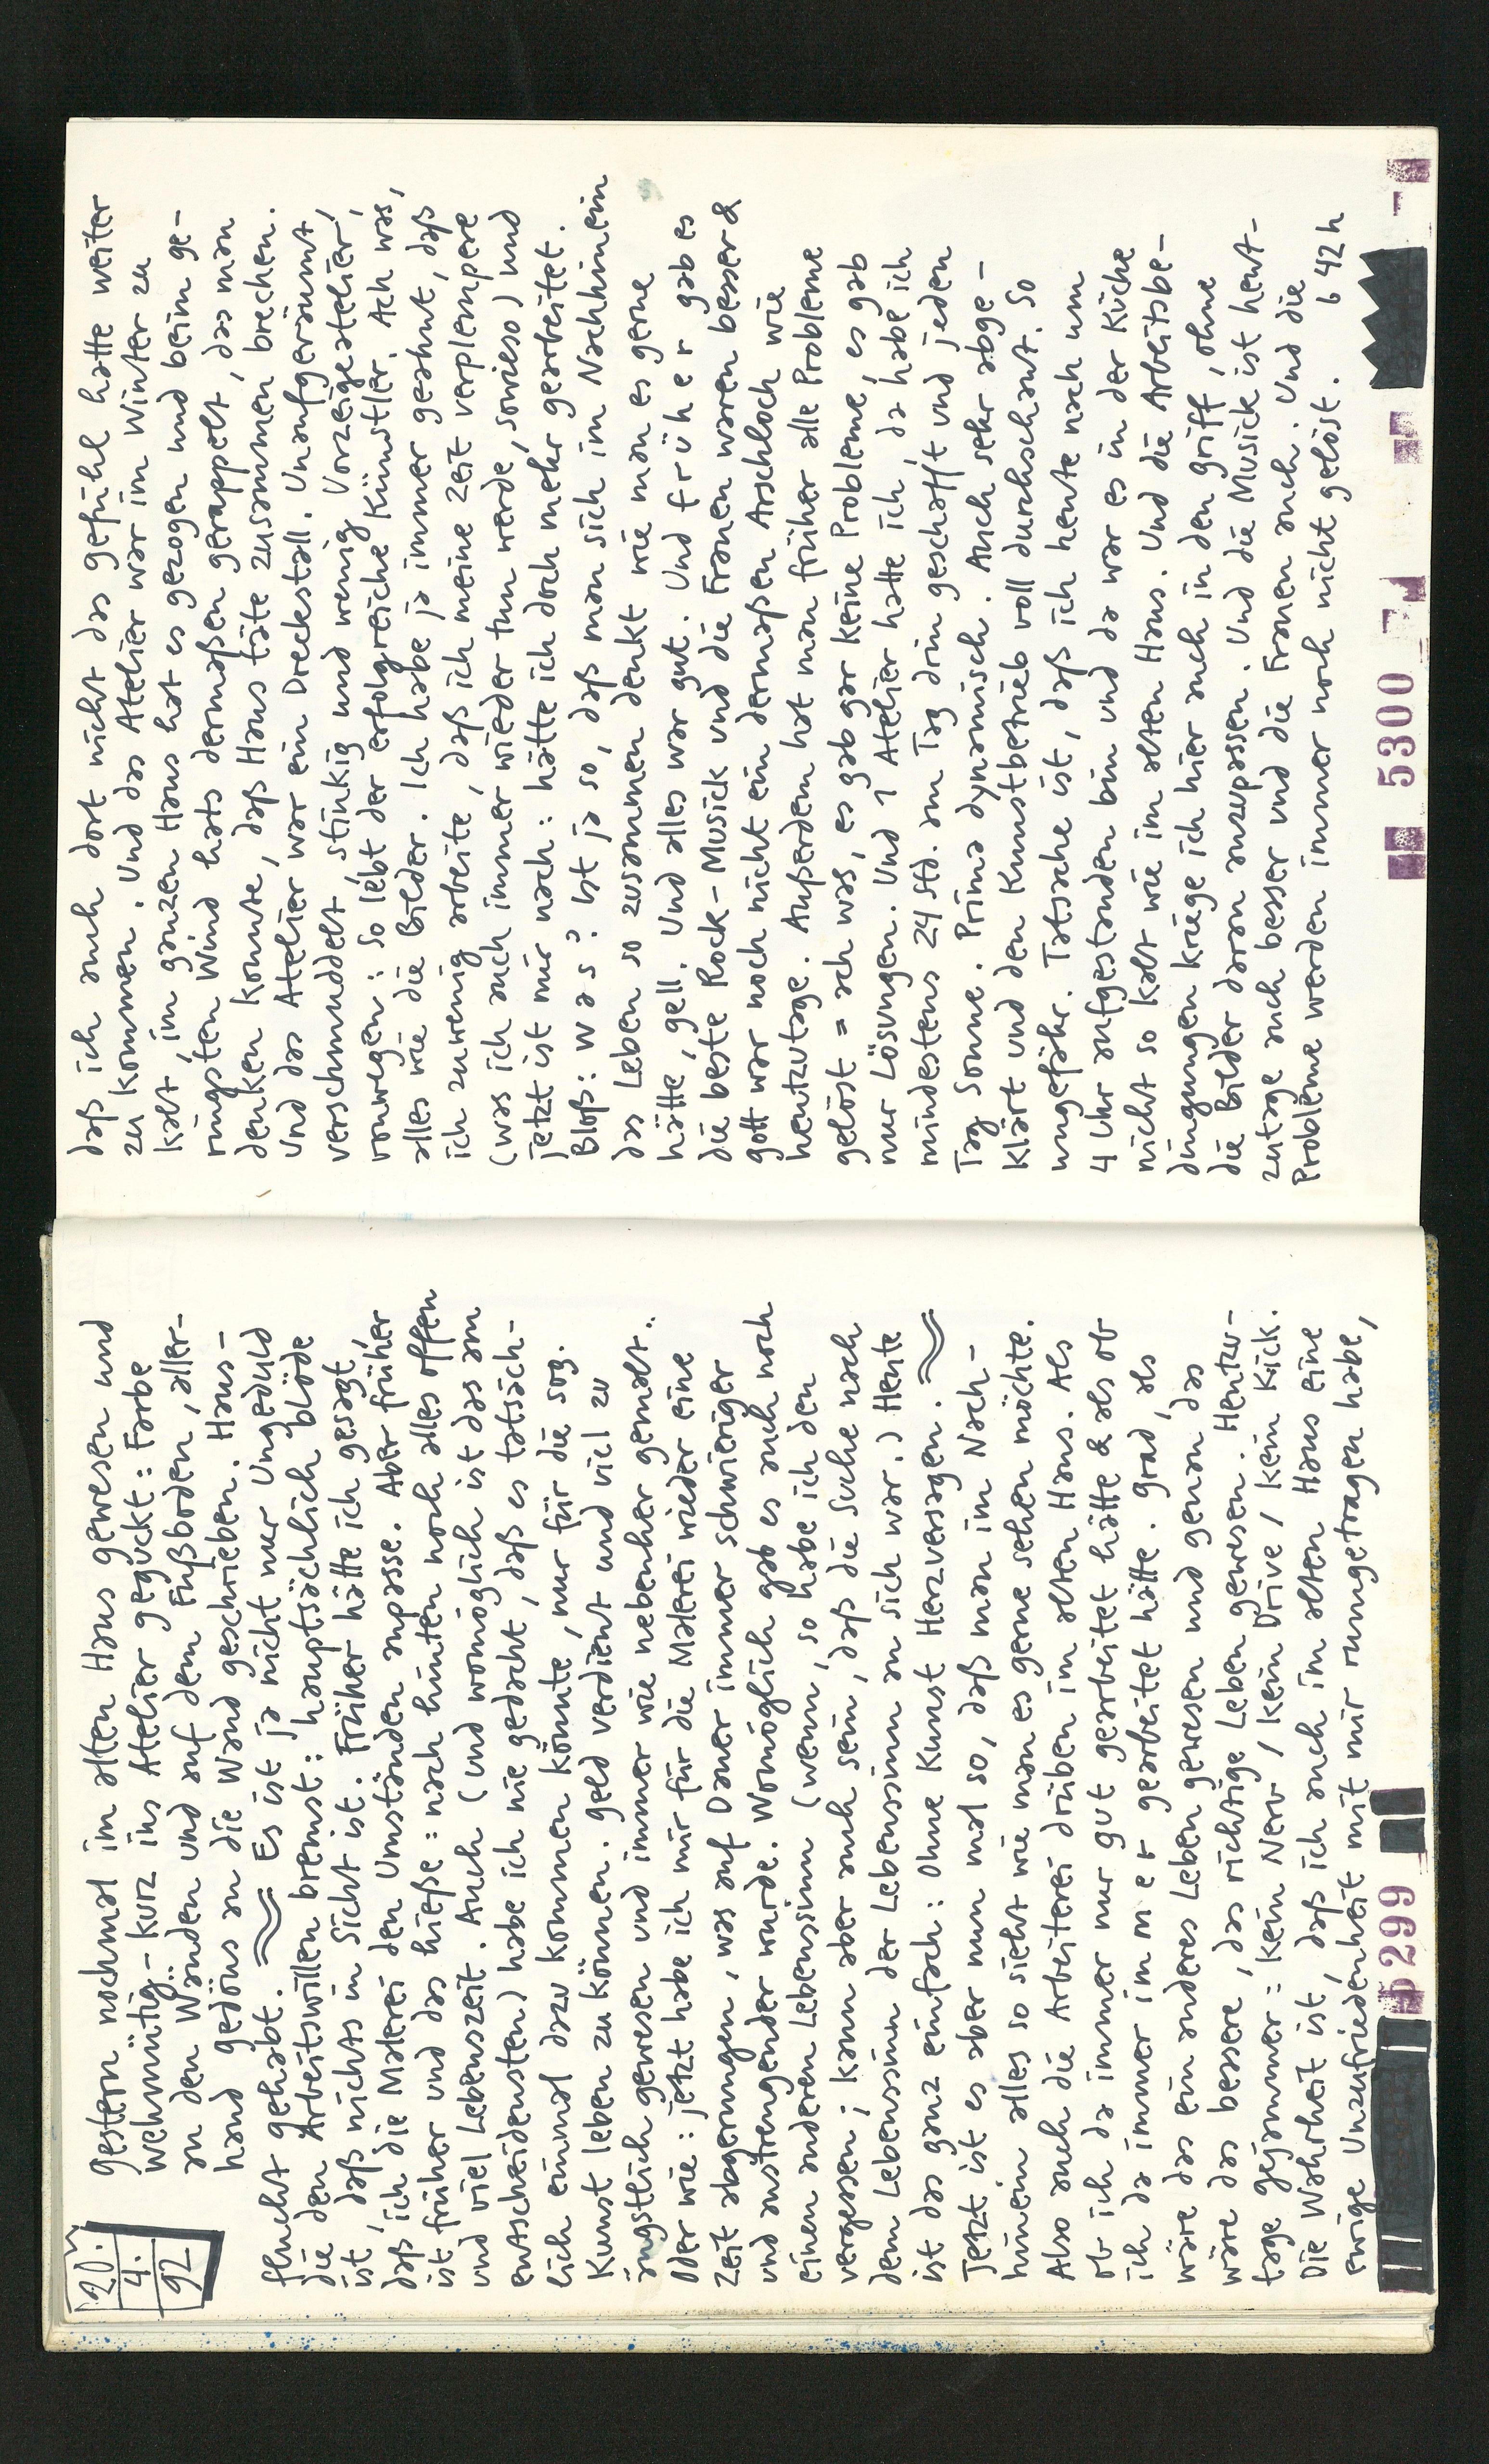 20.
4.
92
gestern nochmal im alten Haus gewesen und
wehmütig-kurz ins Atelier geguckt: Farbe
an den Wänden und auf dem Fußboden, aller-
hand gedöns an die Wand geschrieben. Haus-
flucht gehabt. Es ist ja nicht nur Ungeduld
die den Arbeitswillen bremst: hauptsächlich blöde
ist, daß nichts in Sicht ist. Früher hätte ich gesagt,
daß ich die Malerei den Umständen anpasse. Aber früher
ist früher und das hieße: nach hinten noch alles offen
und viel Lebenszeit. Auch (und womöglich ist das am
entscheidensten) habe ich nie gedacht, daß es tatsäch-
lich einmal dazu kommen könnte, nur für die sog.
Kunst leben zu können. geld verdient und viel zu
ängstlich gewesen und immer wie nebenher gemalt..
Oder wie: jetzt habe ich mir für die Malerei wieder eine
Zeit abgerungen, was auf Dauer immer schwieriger
und anstrengender wurde. Womöglich gab es auch noch
einen anderen Lebenssinn (wenn, so habe ich den
vergessen; kann aber auch sein, daß die Suche nach
dem Lebenssinn der Lebenssinn an sich war.) Heute
ist das ganz einfach: Ohne Kunst Herzversagen.
Jetzt ist es aber nun mal so, daß man im Nach-
hinein alles so sieht wie man es gerne sehen möchte.
Also auch die Arbeiterei drüben im alten Haus. Als
ob ich da immer nur gut gearbeitet hätte & als ob
ich da immer i m m e r gearbeitet hätte. grad, als
wäre das ein anderes Leben gewesen und genau das
wäre das bessere, das richtige Leben gewesen. Heutzu-
tage gejammer: kein Nerv / kein Drive / kein Kick.
Die Wahrheit ist, daß ich auch im alten Haus eine
ewige Unzufriedenheit mit mir rumgetragen habe,
5299
daß ich auch dort nicht das gefühl hatte weiter
zu kommen. Und das Atelier war im Winter zu
kalt, im ganzen Haus hat es gezogen und beim ge-
ringsten Wind hats dermaßen gerappelt, das man
denken konnte, daß Haus täte zusammen brechen.
Und das Atelier war ein Dreckstall. Unaufgeräumt,
verschmuddelt, stinkig und wenig Vorzeigeatelier,
vonwegen: so lebt der erfolgreiche Künstler. Ach was,
alles wie die Bilder. Ich habe ja immer geahnt, daß
ich zuwenig arbeite, daß ich meine Zeit verplempere
(was ich auch immer wieder tun werde, sowieso) und
jetzt ist mir nach: hätte ich doch mehr gearbeitet.
Bloß: w a s ? Ist ja so, daß man sich im Nachhinein
das Leben so zusammen denkt wie man es gerne
hätte, gell. Und alles war gut. Und f r ü h e r gab es
die beste Rock-Musick und die Frauen waren besser &
gott war noch nicht ein dermaßen Arschloch wie
heutzutage. Außerdem hat man früher alle Probleme
gelöst = ach was, es gab gar keine Probleme, es gab
nur Lösungen. Und 1 Atelier hatte ich, da habe ich
mindestens 24 Std. am Tag drin geschafft und jeden
Tag Sonne. Prima dynamisch. Auch sehr abge-
klärt und den Kunstbetrieb voll durchschaut. So
ungefähr. Tatsache ist, daß ich heute nach um
4 Uhr aufgestanden bin und da war es in der Küche
nicht so kalt wie im alten Haus. Und die Arbeitsbe-
dingungen kriege ich hier auch in den griff, ohne
die Bilder daran anzupassen. Und die Musick ist heut-
zutage auch besser und die Frauen auch. Und die
Probleme werden immer noch nicht gelöst. 6 42 h
5300